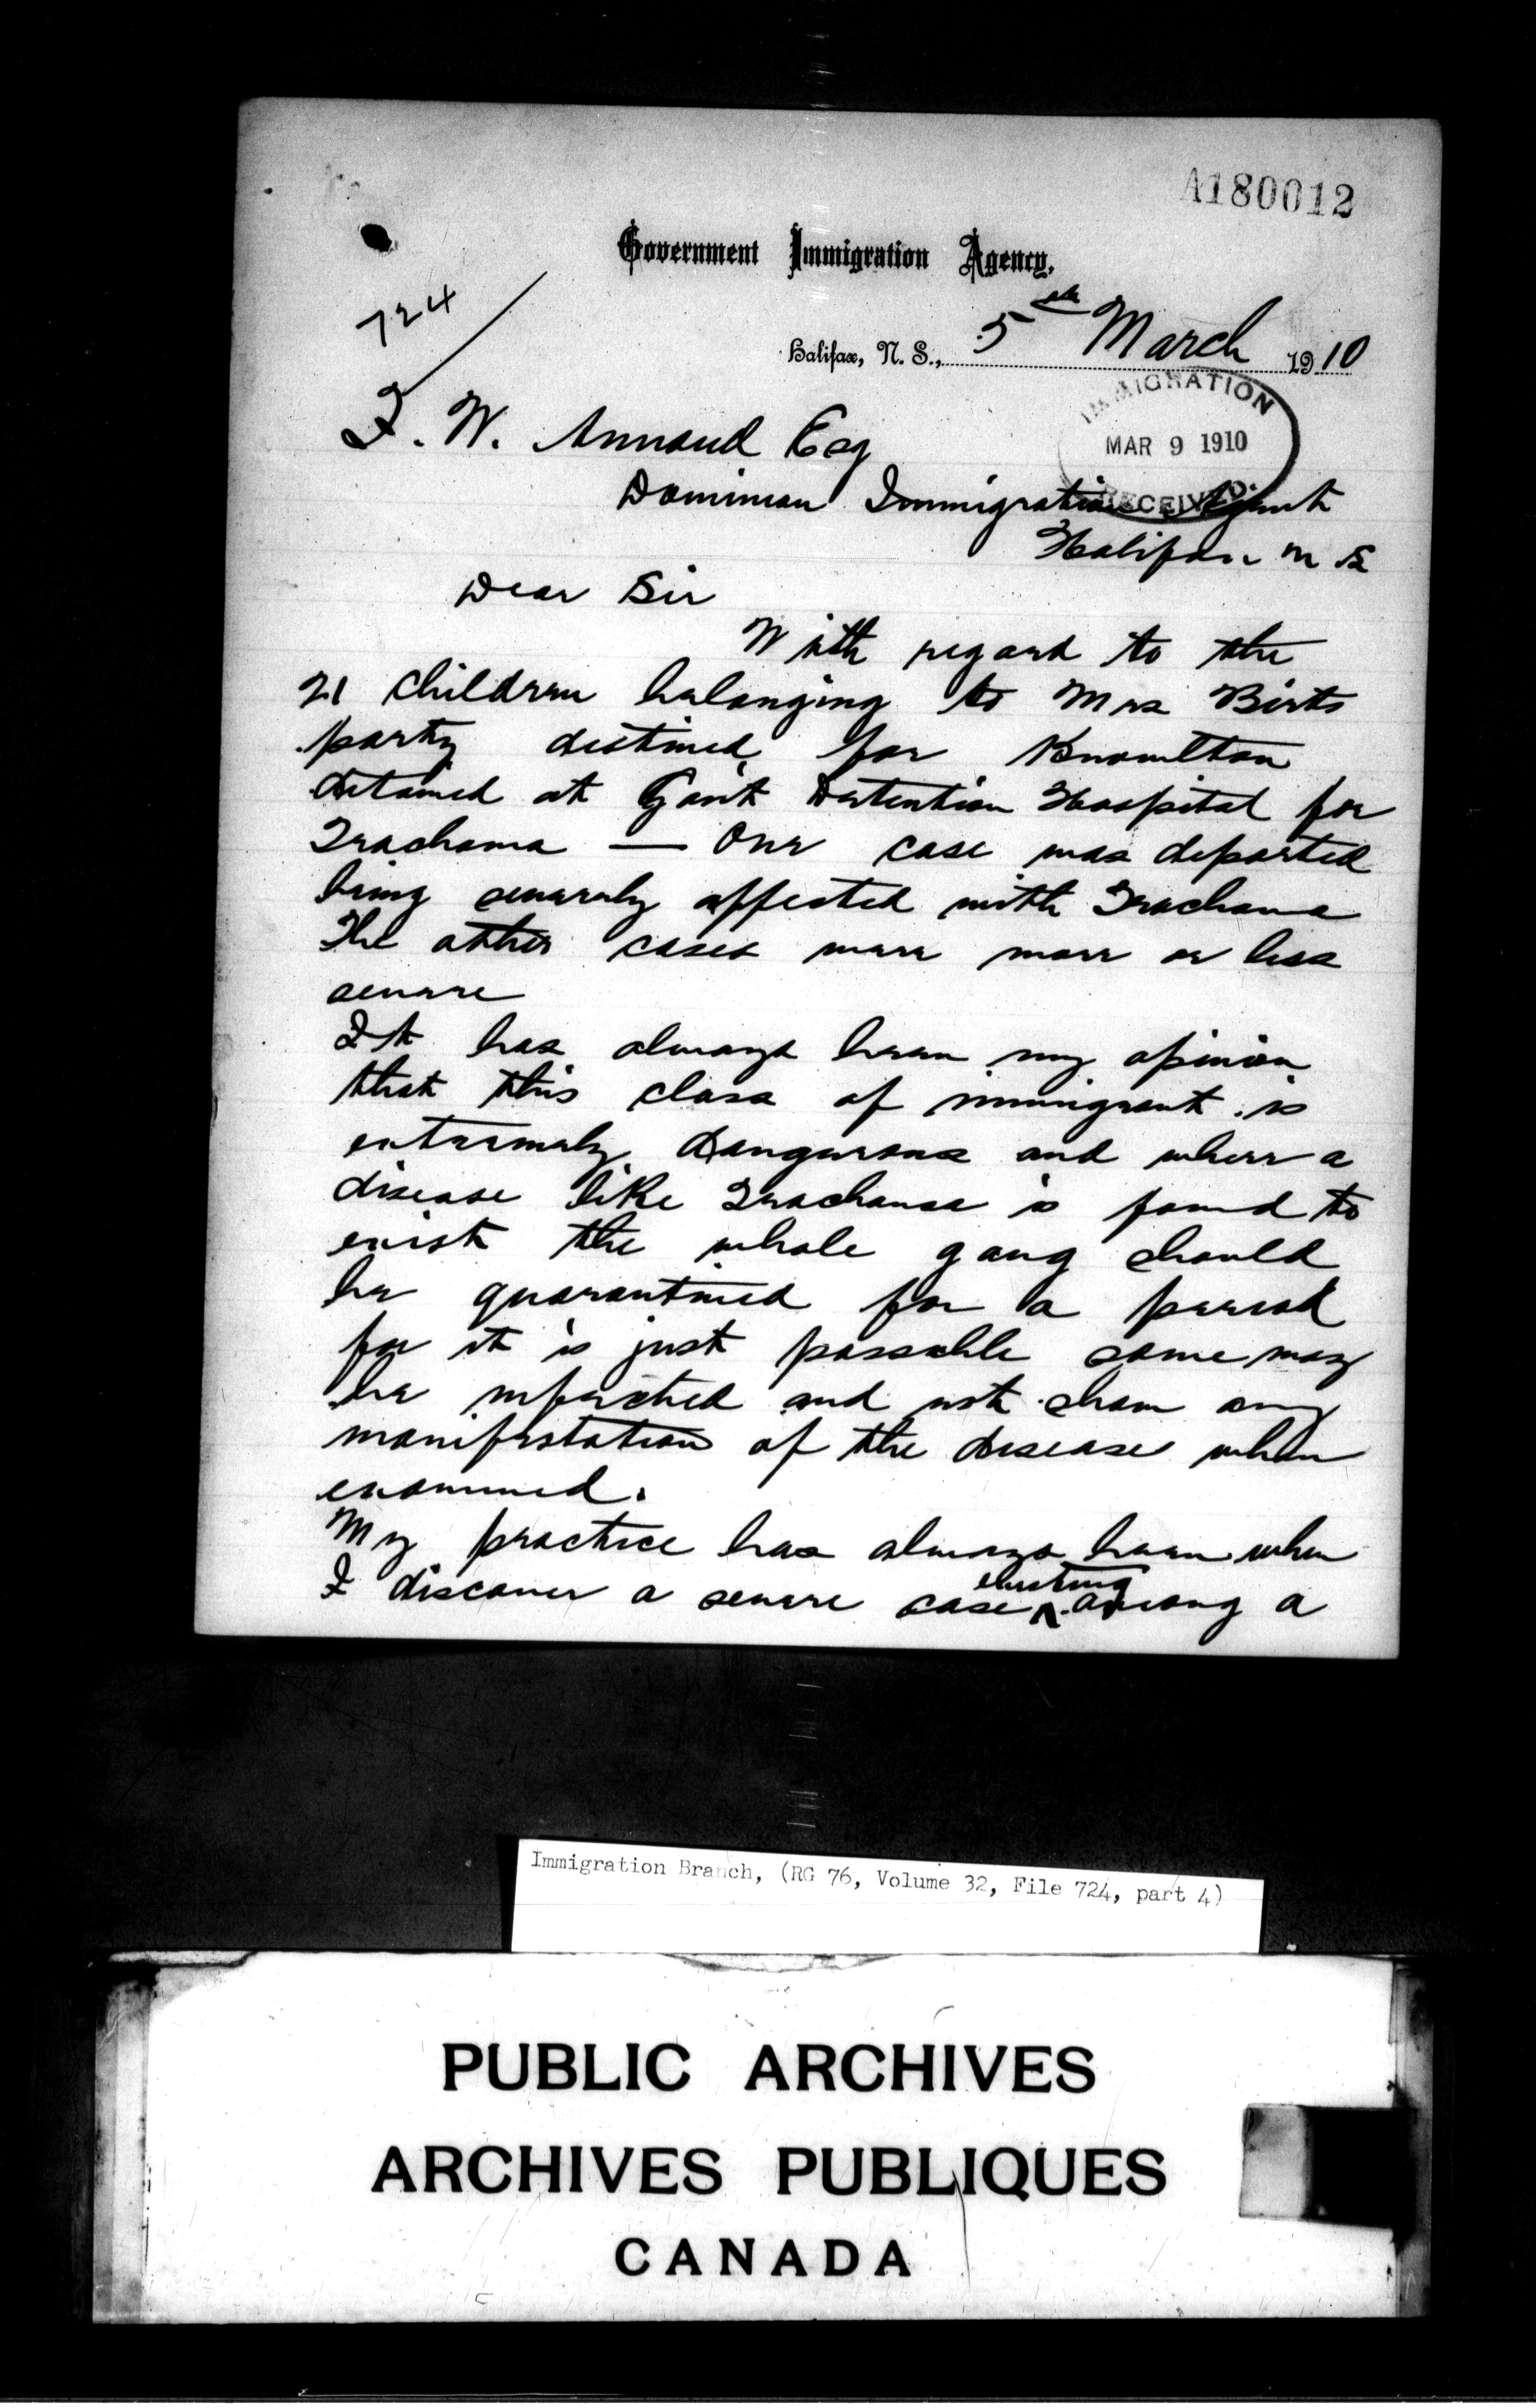 A180012
Government Immigration Agency,
724
Halifax, N. S., 5th March 1910
IMMIGRATION
MAR 9 1910
RECEIVED.
F. W. Annand Esq
Dominion Immigration Agent
Halifax N S
Dear Sir
With regard to the
21 children belonging to Mrs Birts
party destined for Knowlton
detained at Gov't Detention Hospital for
Trachoma — One case was deported
being severely affected with Trachoma
The other cases were more or less
severe
It has always been my opinion
that this class of immigrant is
extremely dangerous and where a
disease like Trachoma is found to
exist the whole gang should
be quarantined for a period
for it is just possible some may
be infected and not show any
manifestation of the disease when
examined.
My practice has always been when
I discover a severe case existing among a
Immigration Branch, (RG 76, Volume 32, File 724, part 4)
PUBLIC ARCHIVES
ARCHIVES PUBLIQUES
CANADA